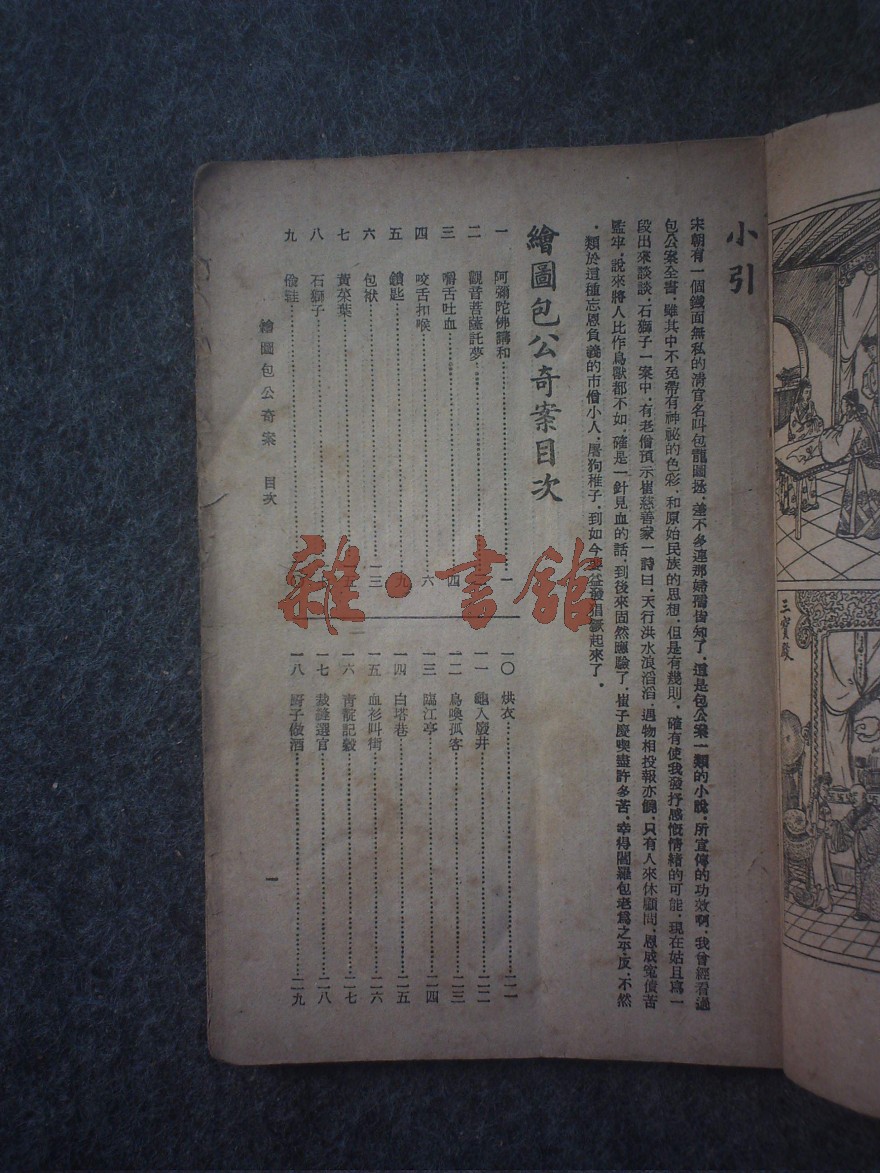 小引
宋朝有一個鐵面無私的清官名叫包龍圖拯．差不多連那婦孺皆知了．這是包公案一類的小說．所宣傳的功效啊．我曾經看過
包公案全書．雖其中不至帶有神祕的色彩．和原始民族的思想．但是有幾則．確有使我發抒感慨情緒的可能．現在姑且寫一
段出來談談．石獅子一案中．有老僧預示崔慈善家一詩曰．天行洪水浪滔滔．遇物相投報亦饒．只有人來休顧問．恩成冤債苦
監牢．說來將人比作鳥獸都不如．確是一針見血的話．到後來固然應驗了．崔子慶喫盡許多苦．幸得閻羅包老爲之平反．不然
．類於這種忘恩負義的市儈小人．屠狗稚子．到如今要益發猖獗起來了．
繪圖包公奇案目次
一 阿彌陀佛講和 一
二 觀音菩薩託夢
三 嚼舌吐血 四
四 咬舌扣喉 六
五 鎖匙 九
六 包袱 一三
七 黃菜葉
八 石獅子
九 偷鞋
一〇 烘衣 二一
一一 龜入廢井 二二
一二 鳥喚孤客 二三
一三 臨江亭 二四
一四 白塔巷 二五
一五 血衫叫街 二六
一六 青靛記穀 二七
一七 裁縫選官 二八
一八 廚子做酒 二九
繪圖包公奇案 目次
一
三寶殿
雜·書館